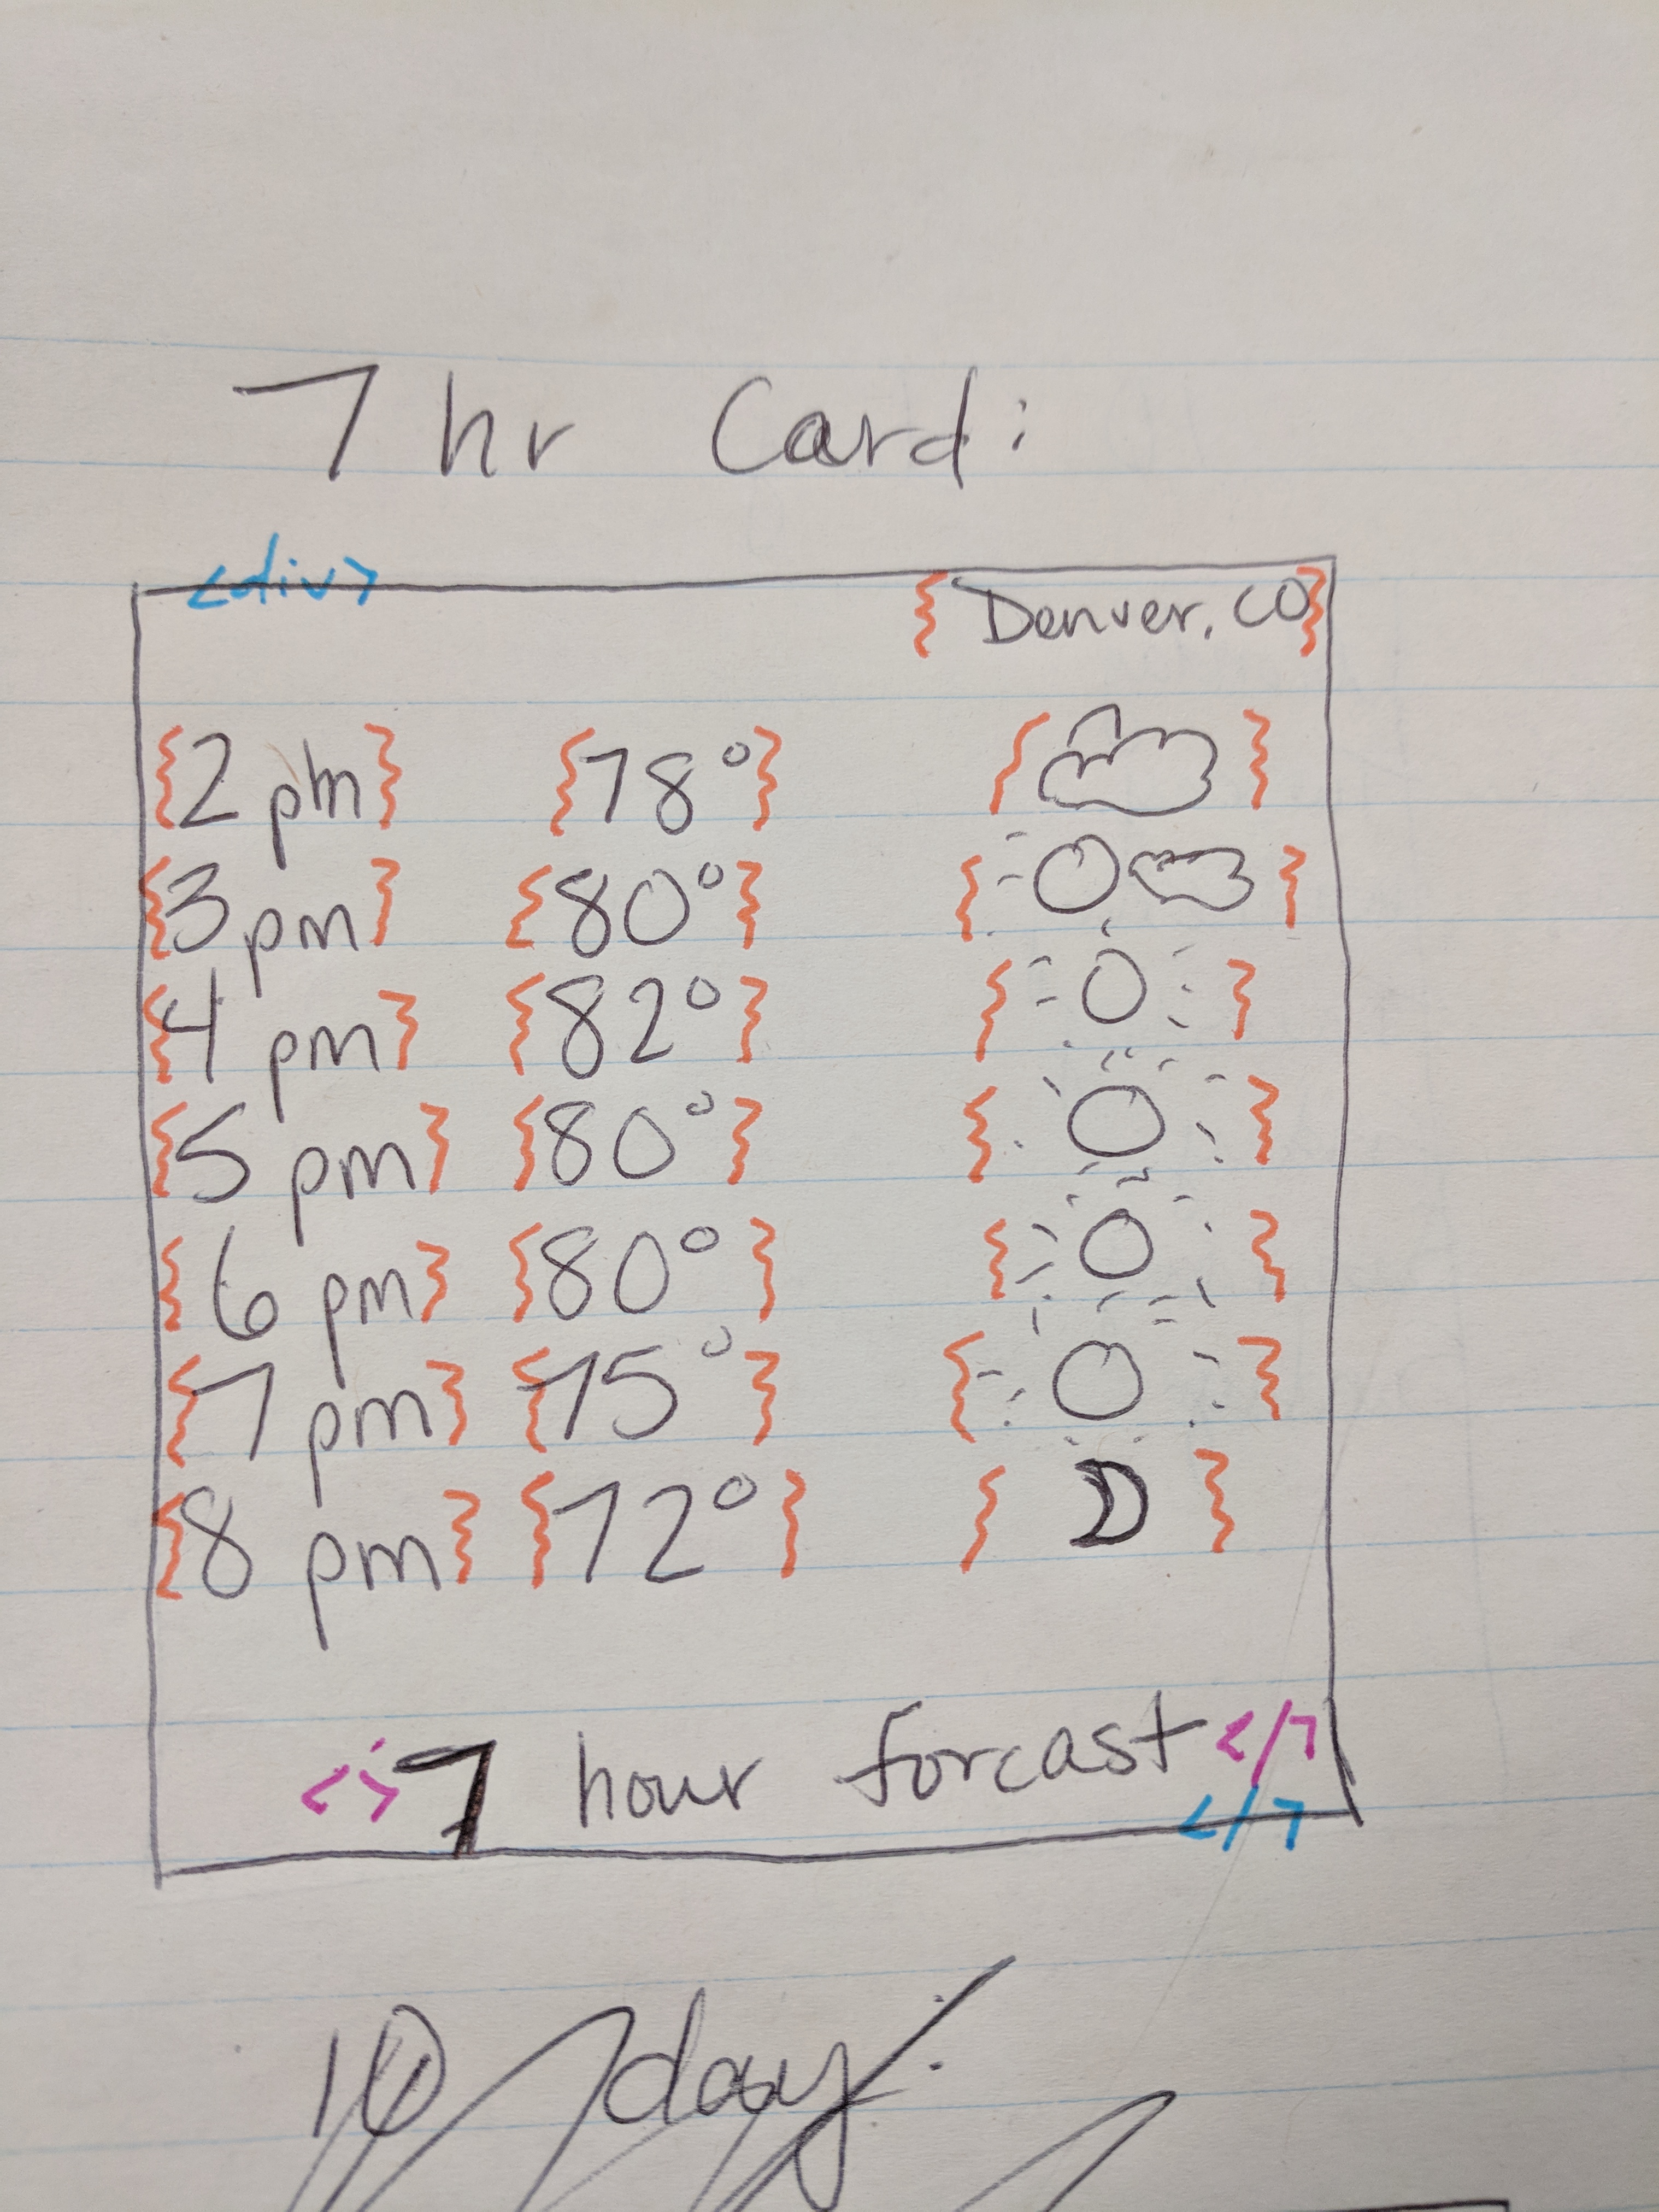 7 hr Card:
<div>
{Denver, CO}
{2 pm} {78°} { }
{3 pm} {80°} { }
{4 pm} {82°} { }
{5 pm} {80°} { }
{6 pm} {80°} { }
{7 pm} {75°} { }
{8 pm} {72°} { }
<i>7 hour forcast</>
</>
10 day: